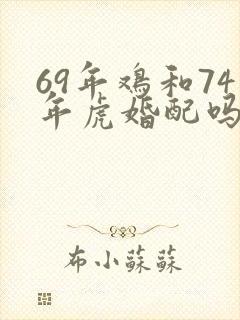 69年鸡和74
年虎婚配吗
布小蘇蘇